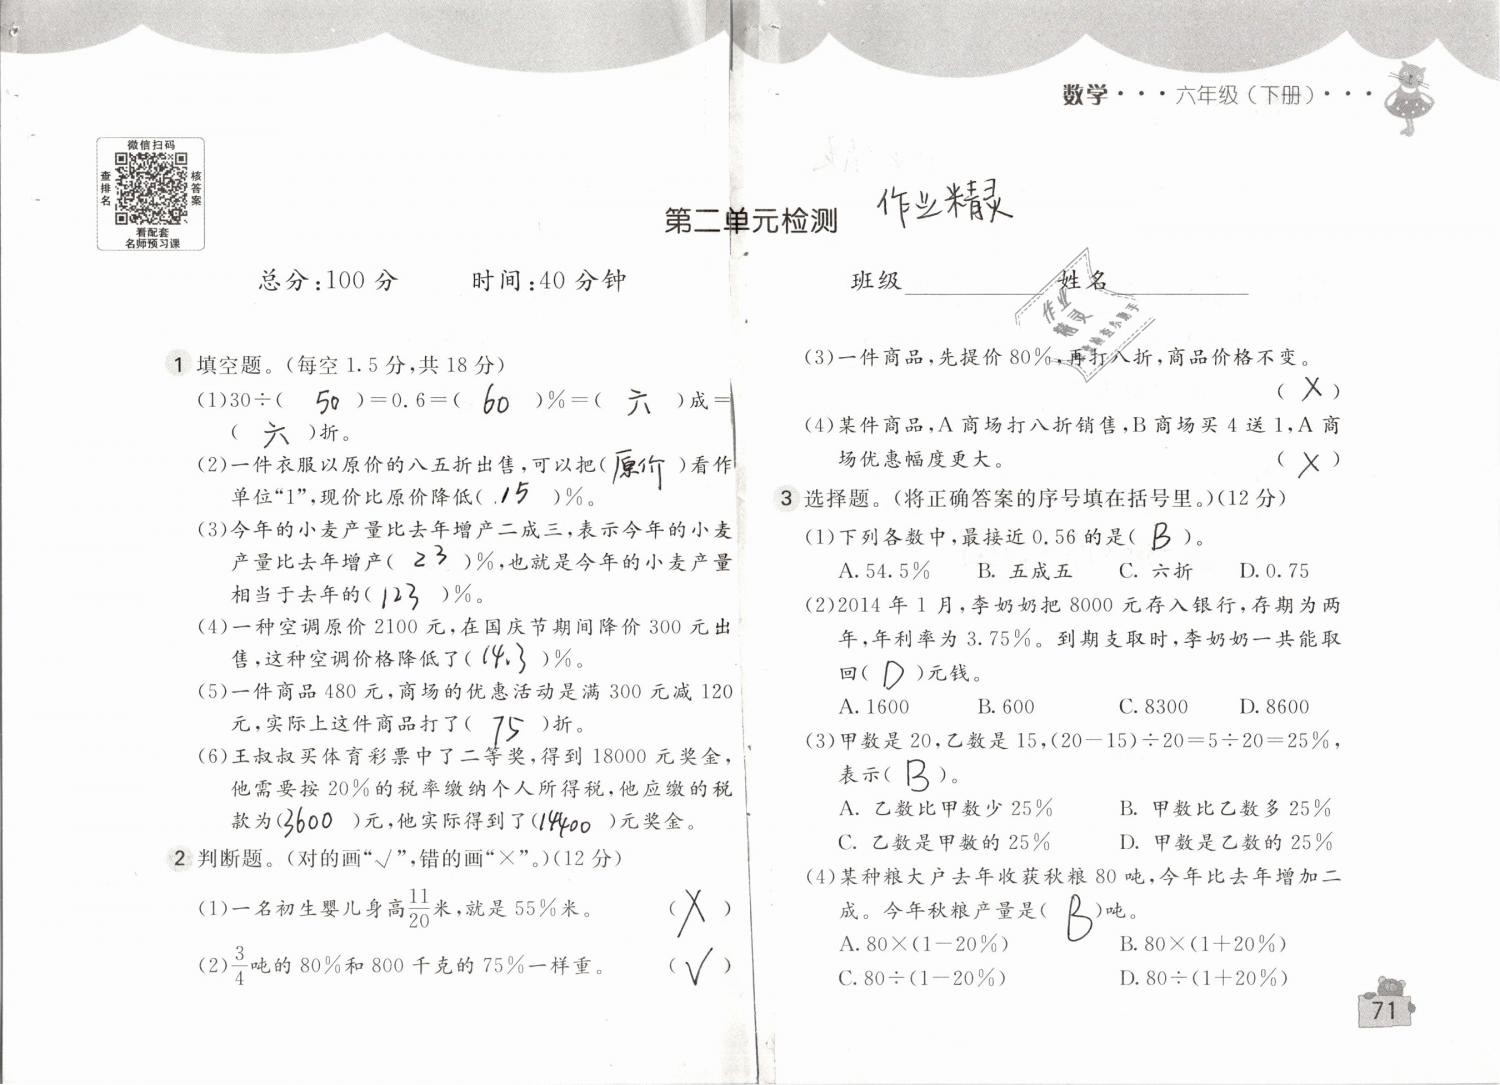 数学···六年级(下册)···
微信扫码
查排名
核答案
看配套
名师预习课
第二单元检测
作业精灵
总分:100分 时间:40分钟 班级 姓名
1 填空题。(每空1.5分,共18分)
(1)30÷( 50 )=0.6=( 60 )%=( 六 )成=
( 六 )折。
(2)一件衣服以原价的八五折出售,可以把( 原价 )看作
单位“1”,现价比原价降低( 15 )%。
(3)今年的小麦产量比去年增产二成三,表示今年的小麦
产量比去年增产( 23 )%,也就是今年的小麦产量
相当于去年的( 123 )%。
(4)一种空调原价2100元,在国庆节期间降价300元出
售,这种空调价格降低了( 14.3 )%。
(5)一件商品480元,商场的优惠活动是满300元减120
元,实际上这件商品打了( 75 )折。
(6)王叔叔买体育彩票中了二等奖,得到18000元奖金,
他需要按20%的税率缴纳个人所得税,他应缴的税
款为(3600 )元,他实际得到了(14400 )元奖金。
2 判断题。(对的画“√”,错的画“×”。)(12分)
(1)一名初生婴儿身高11/20米,就是55%米。 ( × )
(2)3/4吨的80%和800千克的75%一样重。 ( √ )
(3)一件商品,先提价80%,再打八折,商品价格不变。
( × )
(4)某件商品,A商场打八折销售,B商场买4送1,A商
场优惠幅度更大。 ( × )
3 选择题。(将正确答案的序号填在括号里。)(12分)
(1)下列各数中,最接近0.56的是( B )。
A. 54.5% B. 五成五 C. 六折 D. 0.75
(2)2014年1月,李奶奶把8000元存入银行,存期为两
年,年利率为3.75%。到期支取时,李奶奶一共能取
回( D )元钱。
A. 1600 B. 600 C. 8300 D. 8600
(3)甲数是20,乙数是15,(20-15)÷20=5÷20=25%,
表示( B )。
A. 乙数比甲数少25% B. 甲数比乙数多25%
C. 乙数是甲数的25% D. 甲数是乙数的25%
(4)某种粮大户去年收获秋粮80吨,今年比去年增加二
成。今年秋粮产量是( B )吨。
A. 80×(1-20%) B. 80×(1+20%)
C. 80÷(1-20%) D. 80÷(1+20%)
作业
精灵
71